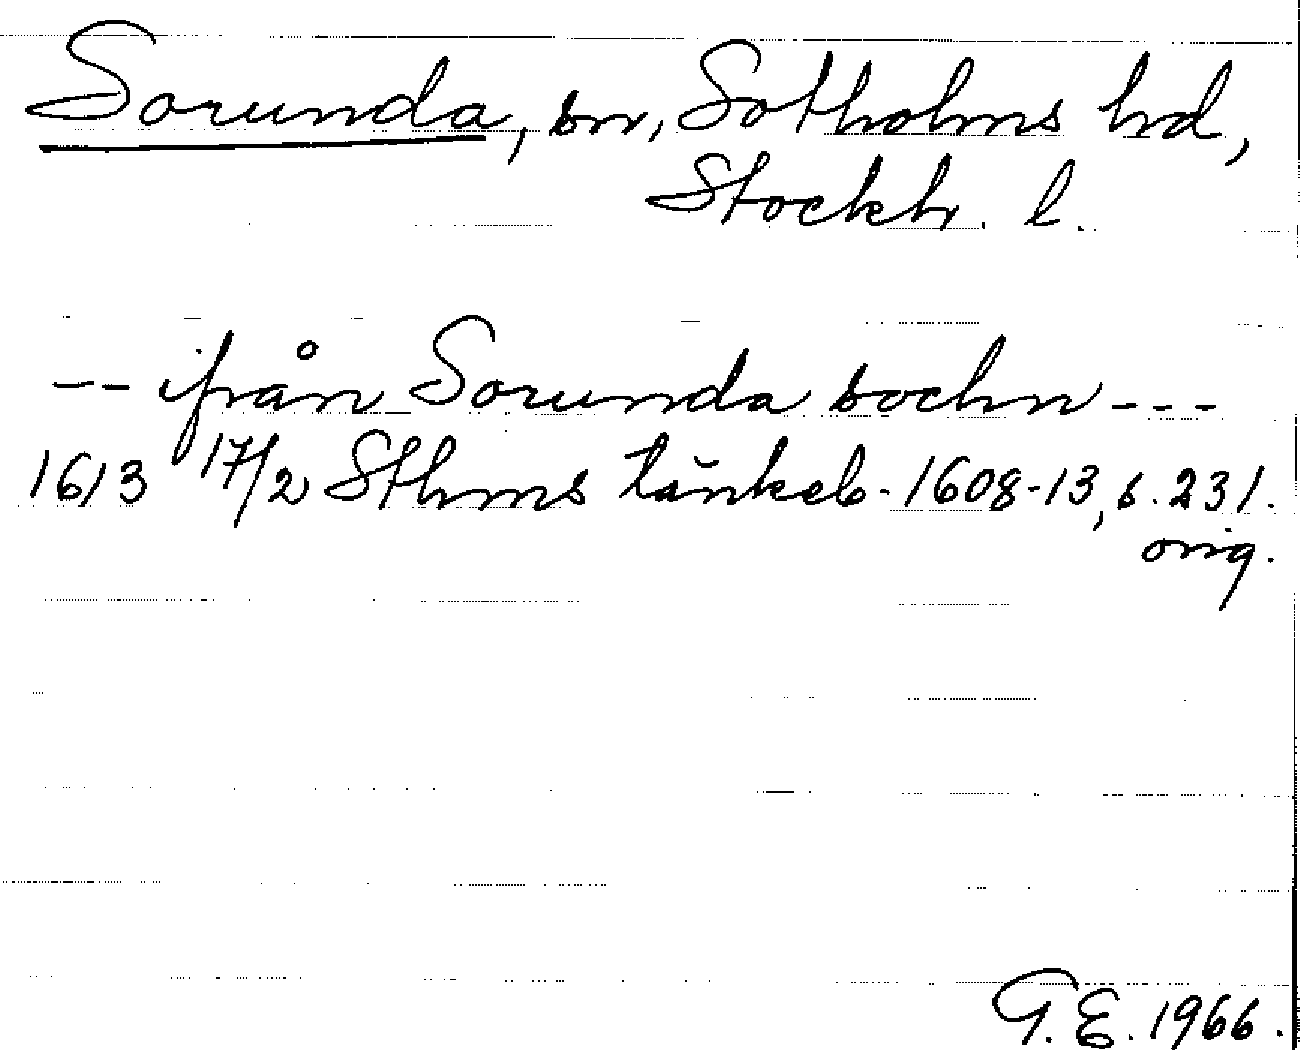 Sorunda, sn, Sotholms hd,
Stockh. l.
-- ifrån Sorunda sochn ---
1613 17/2 Sthms tänkeb. 1608-13, s. 231.
orig.
G.E. 1966.